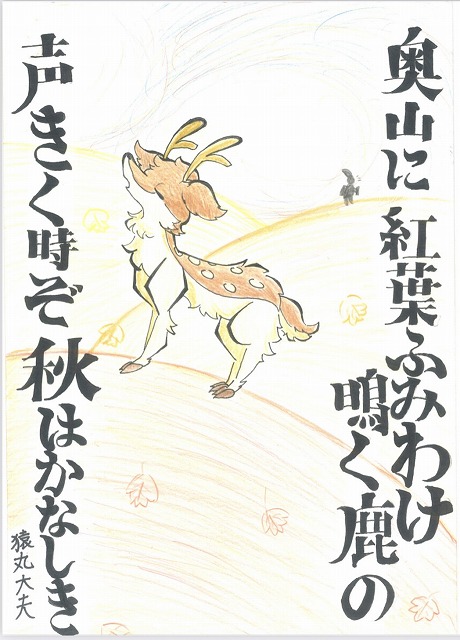 奥山に 紅葉ふみわけ
鳴く鹿の
声きく時ぞ 秋はかなしき
猿丸大夫